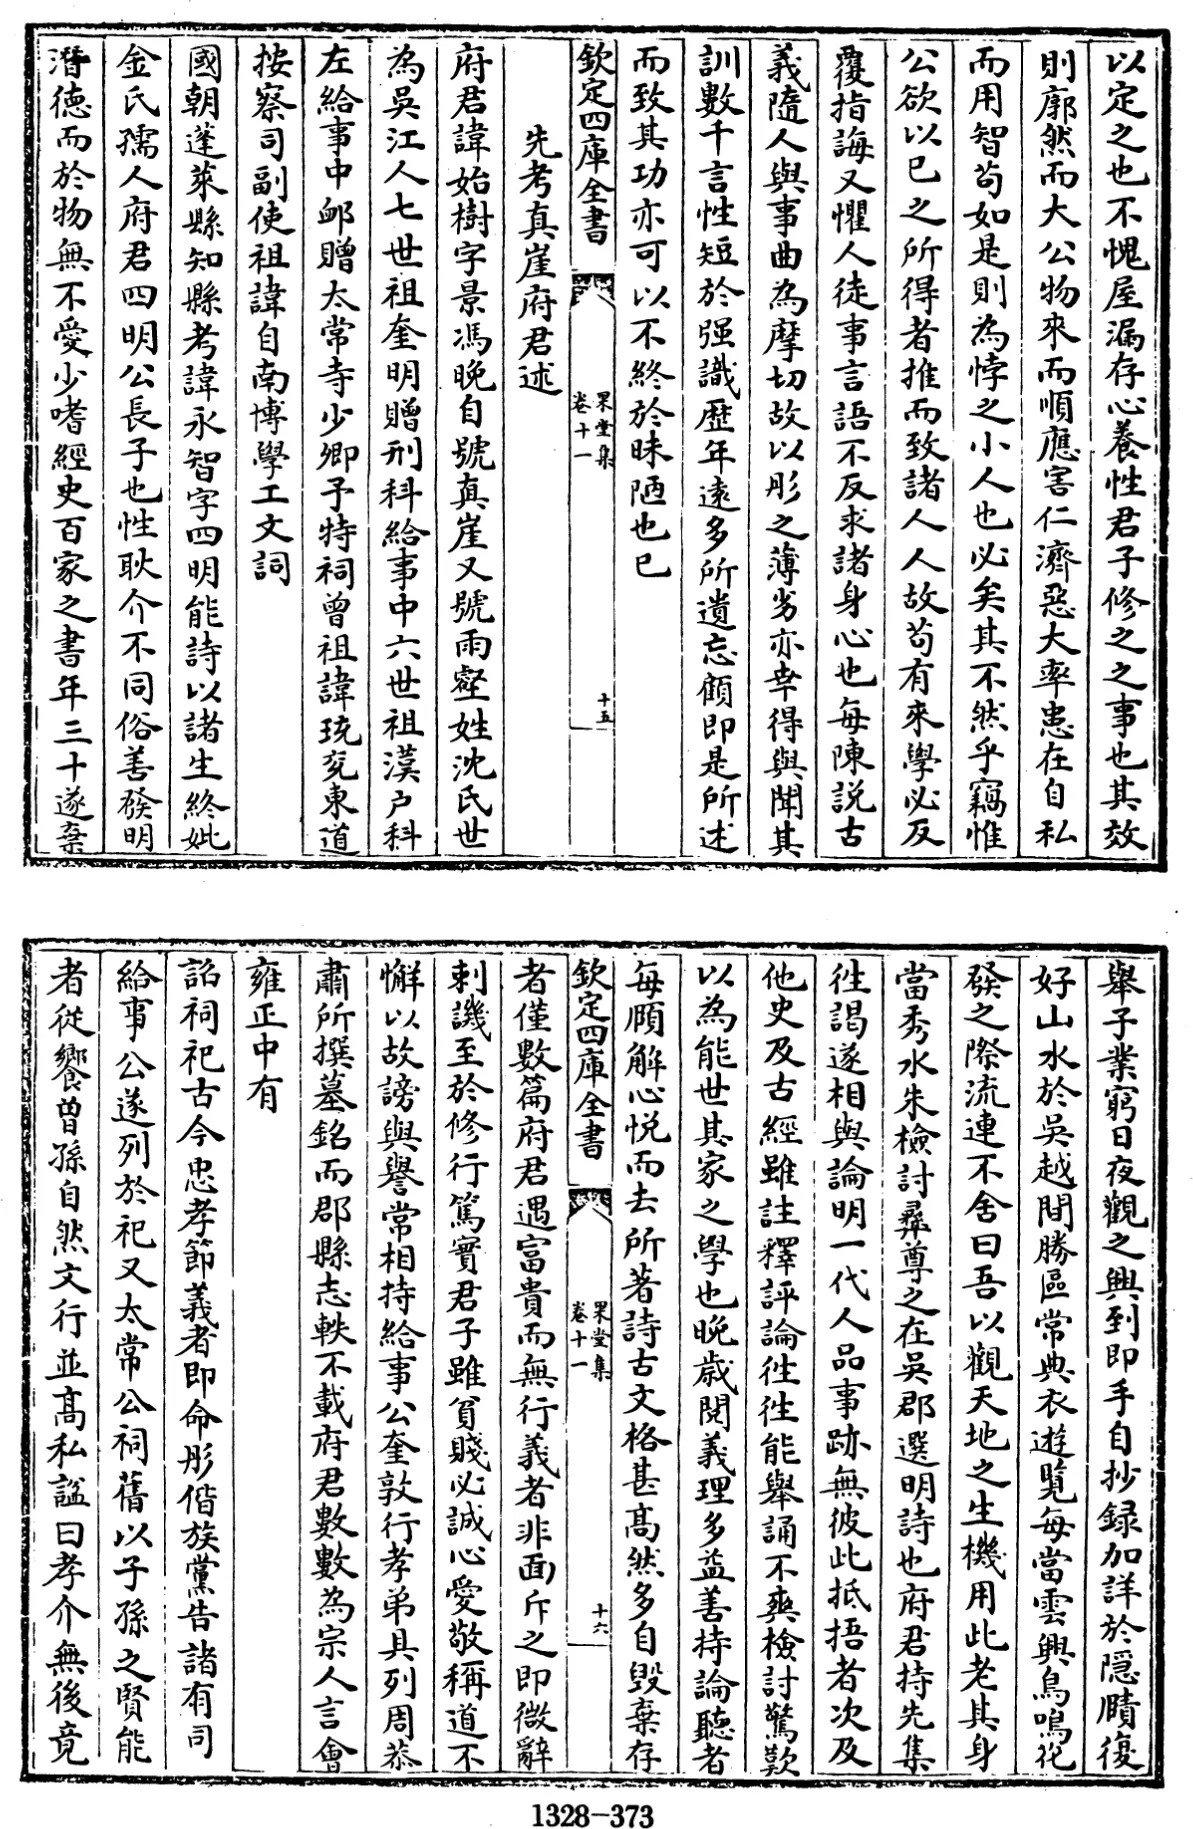 以定之也不愧屋漏存心養性君子修之之事也其效
則廓然而大公物來而順應害仁濟惡大率患在自私
而用智苟如是則為悖之小人也必矣其不然乎竊惟
公欲以已之所得者推而致諸人人故苟有來學必反
覆指誨又懼人徒事言語不反求諸身心也每陳説古
義隨人與事曲為摩切故以彤之薄劣亦幸得與聞其
訓數千言性短於强識歴年逺多所遺忘顧即是所述
而致其功亦可以不終於昧陋也已
欽定四庫全書
果堂集
卷十一
十五
先考真崖府君述
府君諱始樹字景馮晩自號真崖又號雨壑姓沈氏世
為吳江人七世祖奎明贈刑科給事中六世祖漢户科
左給事中䘏贈太常寺少卿子特祠曾祖諱珫兖東道
按察司副使祖諱自南博學工文詞
國朝蓬萊縣知縣考諱永智字四明能詩以諸生終妣
金氏孺人府君四明公長子也性耿介不同俗善發明
潛德而於物無不愛少嗜經史百家之書年三十遂棄
舉子業窮日夜觀之興到即手自抄録加詳於隠賾復
好山水於吳越間勝區常典衣遊覧每當雲興鳥鳴花
發之際流連不舍曰吾以觀天地之生機用此老其身
當秀水朱檢討彞尊之在吳郡選明詩也府君持先集
徃謁遂相與論明一代人品事跡無彼此抵捂者次及
他史及古經雖註釋評論徃徃能舉誦不爽檢討驚歎
以為能世其家之學也晩歳閲義理多益善持論聽者
每頤解心悦而去所著詩古文格甚髙然多自毁棄存
欽定四庫全書
果堂集
卷十一
十六
者僅數篇府君遇富貴而無行義者非面斥之即微辭
刺譏至於修行篤實君子雖貧賤必誠心愛敬稱道不
懈以故謗與譽常相持給事公奎敦行孝弟具列周恭
肅所撰墓銘而郡縣志軼不載府君數數為宗人言會
雍正中有
詔祠祀古今忠孝節義者即命彤偕族黨告諸有司
給事公遂列於祀又太常公祠舊以子孫之賢能
者從饗曽孫自然文行並髙私諡曰孝介無後竟
1328-373